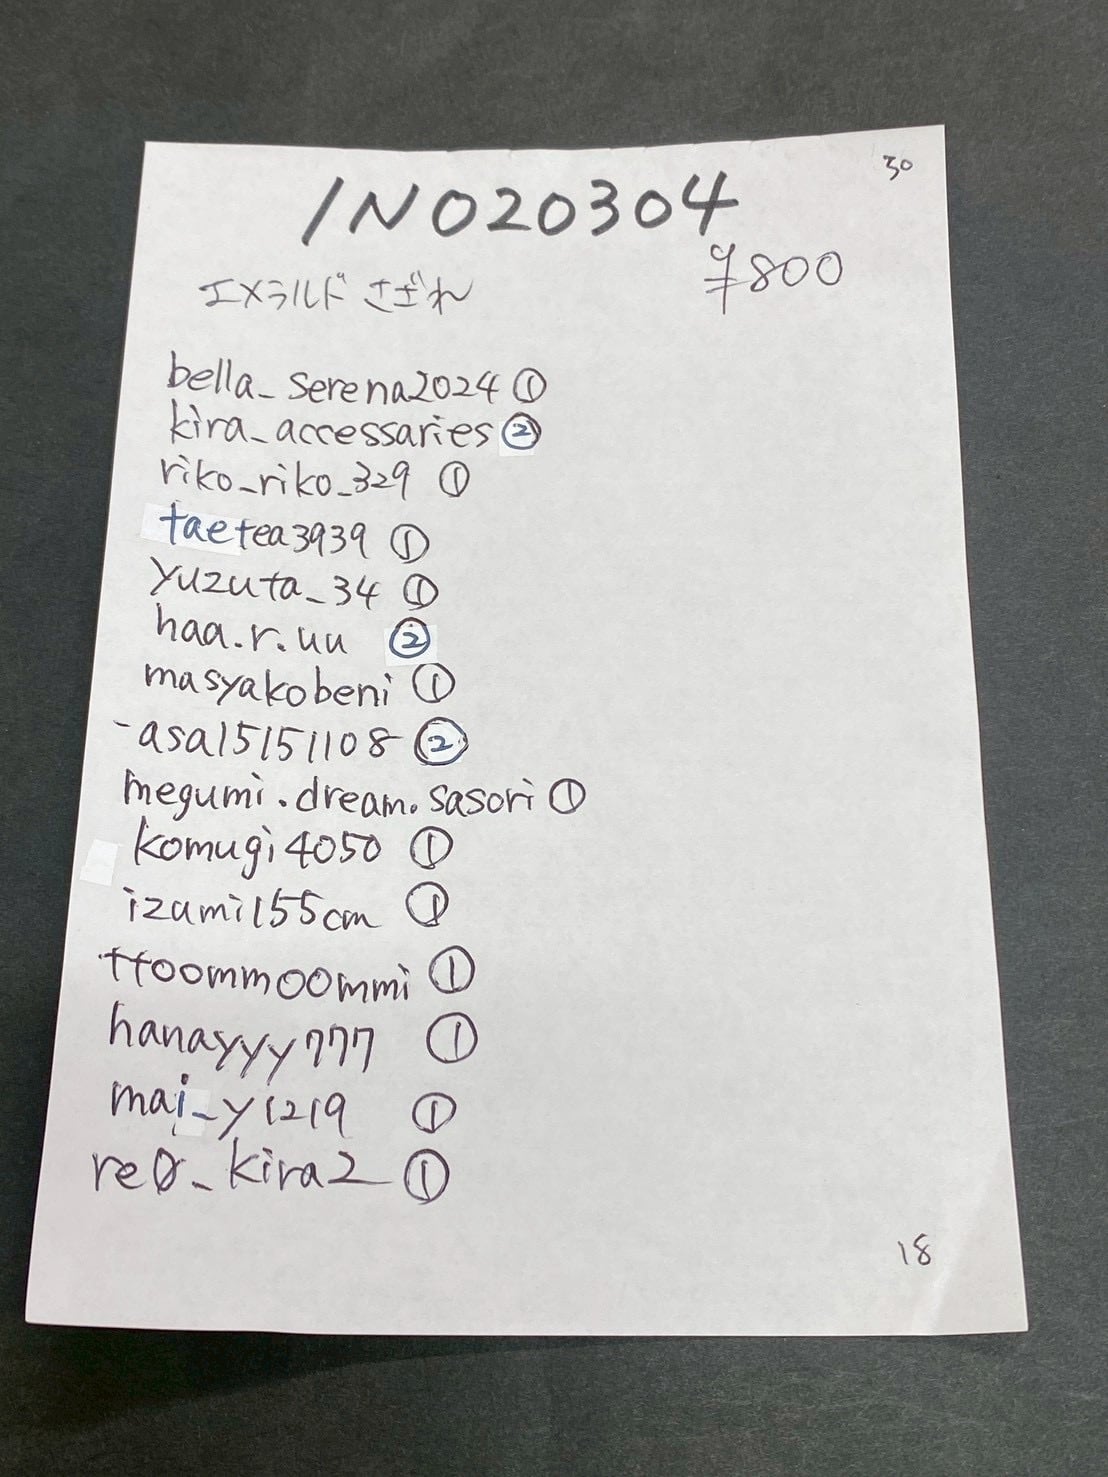 30
INO20304
¥800
エメラルド さざれ
bella_serena2024 ①
kira_accessaries ②
riko_riko_329 ①
taetea3939 ①
yuzuta_34 ①
haa.r.uu ②
masyakobeni ①
-asa15151108 ②
megumi.dream.sasori ①
komugi4050 ①
izami155cm ①
ttoommoommi ①
hanayyy777 ①
mai_y1219 ①
re0_kira2 ①
18